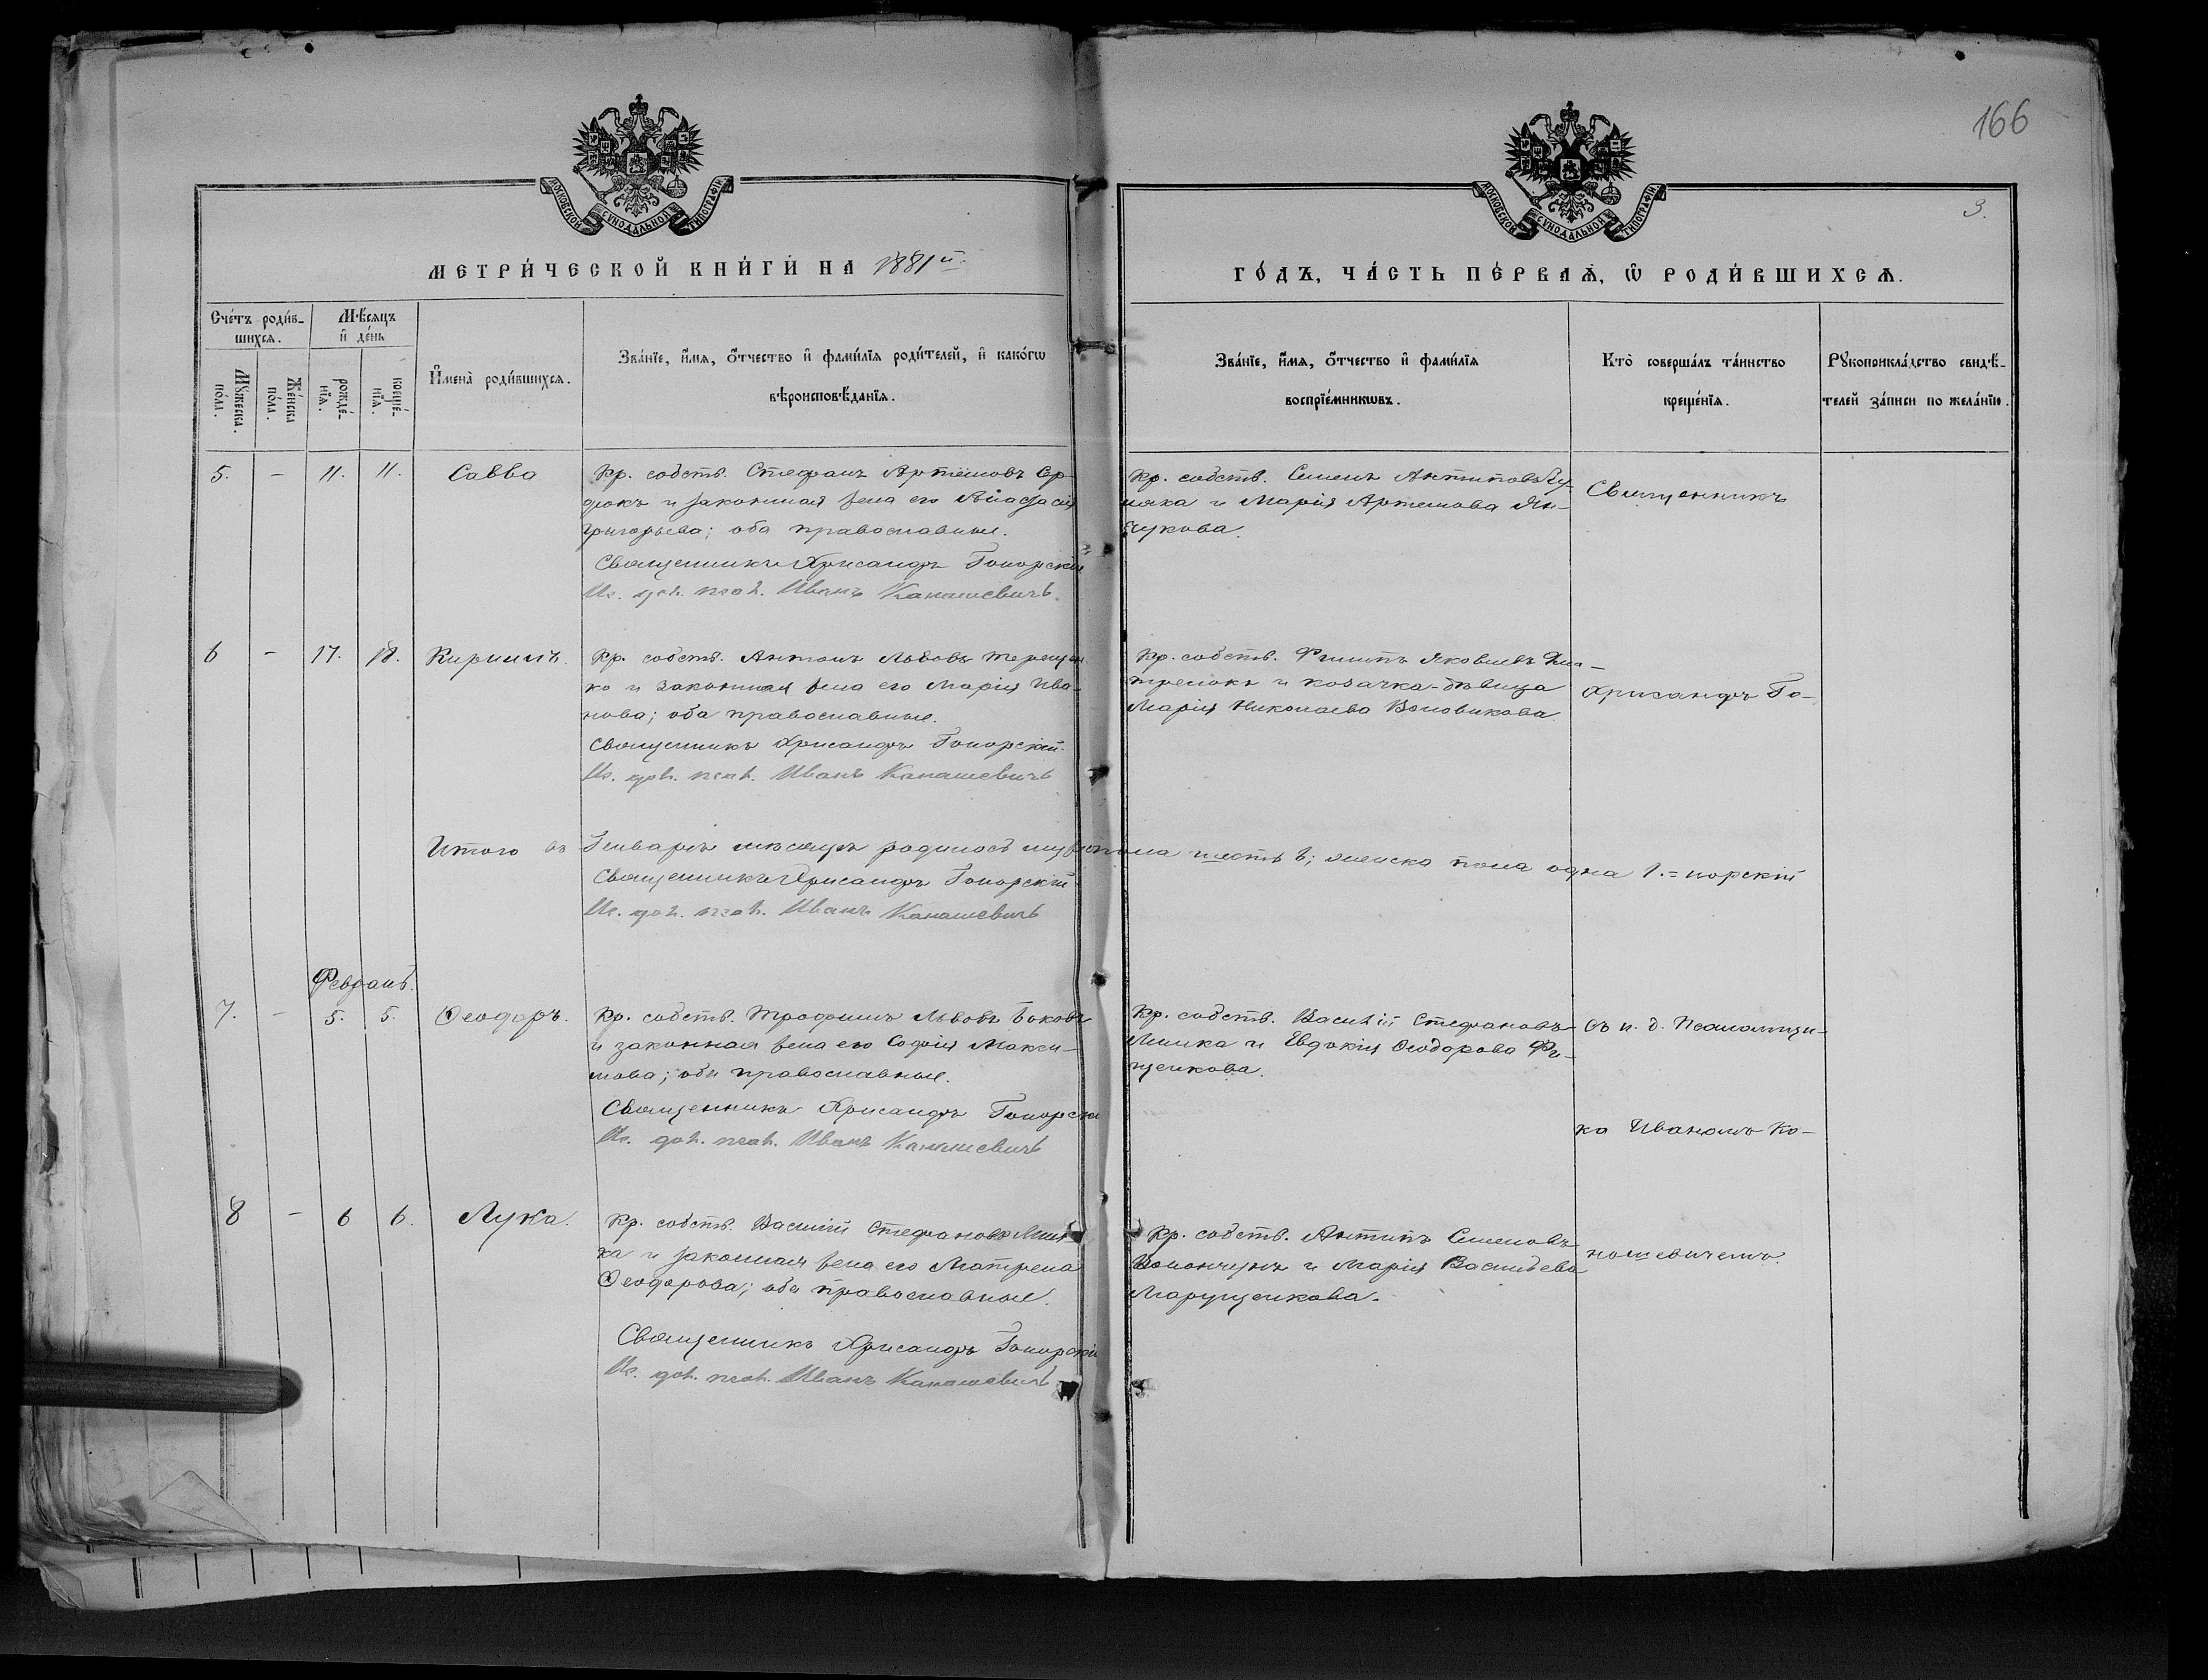 166
3.
МОСКОВСКОЙ СѴНОДАЛЬНОЙ ТИПОГРАФІИ
МОСКОВСКОЙ СѴНОДАЛЬНОЙ ТИПОГРАФІИ
МЕТРИ́ЧЕСКОЙ КНИ́ГИ НА 1881й
ГО́ДЪ, ЧА́СТЬ ПЕ́РВАѦ, Ѡ РОДИ́ВШИХСѦ.
Сче́тъ роди́в-
шихсѧ.
Мѣ́сѧцъ
и де́нь
Мꙋ́жеска по́ла.
Же́нска по́ла.
рожде́-нїѧ.
креще́-нїѧ.
И҆мена̀ роди́вшихсѧ.
Зва́нїе, и҆́мѧ, ѻ҆́тчество и҆ фами́лїѧ роди́телей, и҆ како́гѡ
вѣроисповѣ́данїѧ.
Зва́нїе, и҆́мѧ, ѻ҆́тчество и҆ фами́лїѧ
воспрїе́мникѡвъ.
Кто̀ соверша́лъ та́инство
креще́нїѧ.
Рꙋкоприкла́дство свидѣ́-
телей за́писи по жела́нїю.
5. - 11. 11. Савва
Кр. собств. Стефанъ Артемовъ Сер-
дюкъ и законная жена его Анастасія
Григорьева; оба православные.
Священникъ Хрисанфъ Гонорскій
Ис. дол. псал. Иванъ Каношевичъ.
Кр. собств. Семенъ Антиповъ
и Марія Артемова
чукова.
Священникъ
6 - 17. 18. Кириллъ.
Кр. собств. Антонъ Львовъ Терещен-
ко и законная жена его Марія Ива-
нова; оба православные.
Священникъ Хрисанфъ Гонорскій.
Ис. дол. псал. Иванъ Каношевичъ
Кр. собств. Филиппъ Яковлевъ Дми-
тренокъ и козачка-дѣвица
Марія Николаева Воловикова.
Хрисанфъ Го-
Итого въ Генварѣ мѣсяцѣ родилось муж. пола шесть 6; женска пола одна 1. = норскій
Священникъ Хрисанфъ Гонорскій
Ис. дол. псал. Иванъ Каношевичъ
Февраль.
7. - 5. 5. Ѳеодоръ.
Кр. собств. Трофимъ Львовъ Боковъ
и законная жена его Софія Макси-
мова; оба православные.
Священникъ Хрисанфъ Гонорскій
Ис. дол. псал. Иванъ Каношевичъ
Кр. собств. Василій Стефановъ
Мишка и Евдокія Ѳеодорова
щенкова.
съ и. д. Псаломщи-
ка Иваномъ Ка-
8 - 6 6. Лука.
Кр. собств. Василій Стефановъ Миш-
ка и законная жена его Матрена
Ѳеодорова; оба православные.
Священникъ Хрисанфъ Гонорскій
Ис. дол. псал. Иванъ Каношевичъ
Кр. собств. Антипъ Семеновъ
и Марія Васильева
Марущенкова.
ношевичемъ.